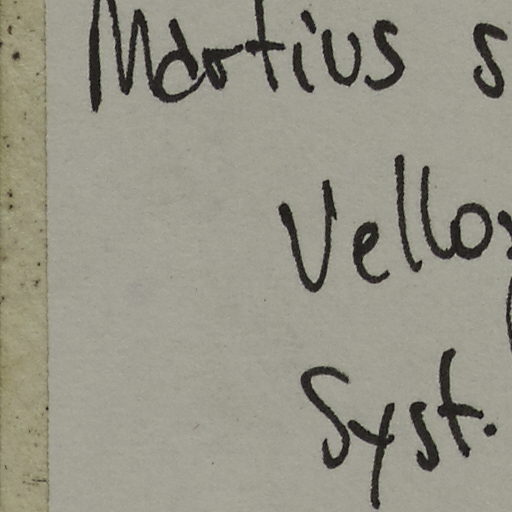 Martius s
Velloz
Syst.